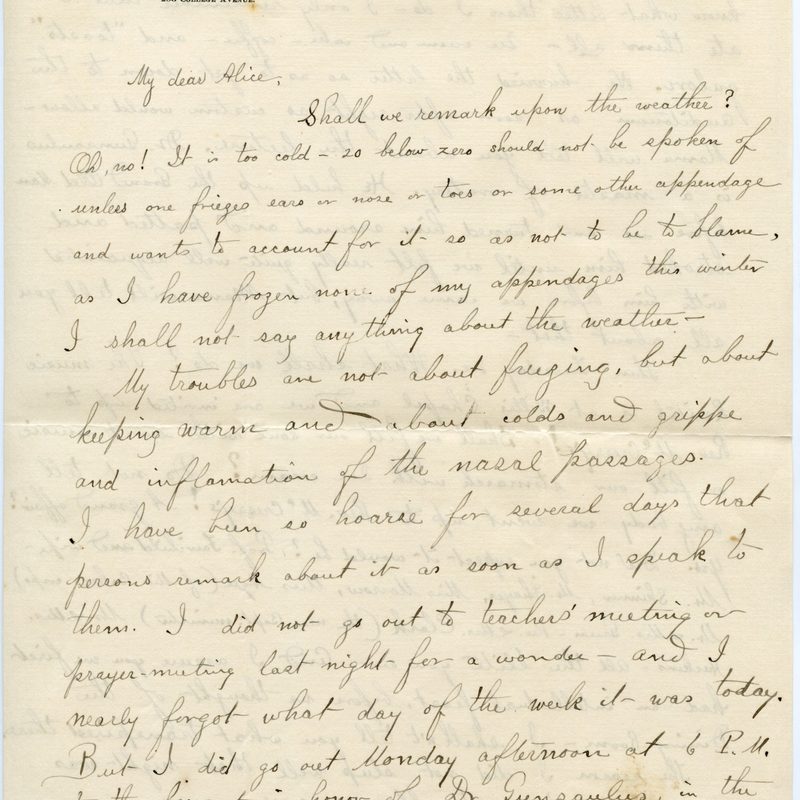 208 COLLEGE AVENUE.
My dear Alice,
Shall we remark upon the weather?
Oh, no! It is too cold – 20 below zero should not be spoken of
unless one friezes ears or nose or toes or some other appendage
and wants to account for it so as not to be to blame,
as I have frozen none of my appendages this winter
I shall not say anything about the weather –
My troubles are not about freezing, but about
keeping warm and about colds and grippe
and inflamation of the nasal passages.
I have been so hoarse for several days that
persons remark about it as soon as I speak to
them. I did not go out to teachers' meeting or
prayer-meeting last night for a wonder – and I
nearly forgot what day of the week it was today.
But I did go out Monday afternoon at 6 P.M.
in honor of Dr. Gunsaulus, in the